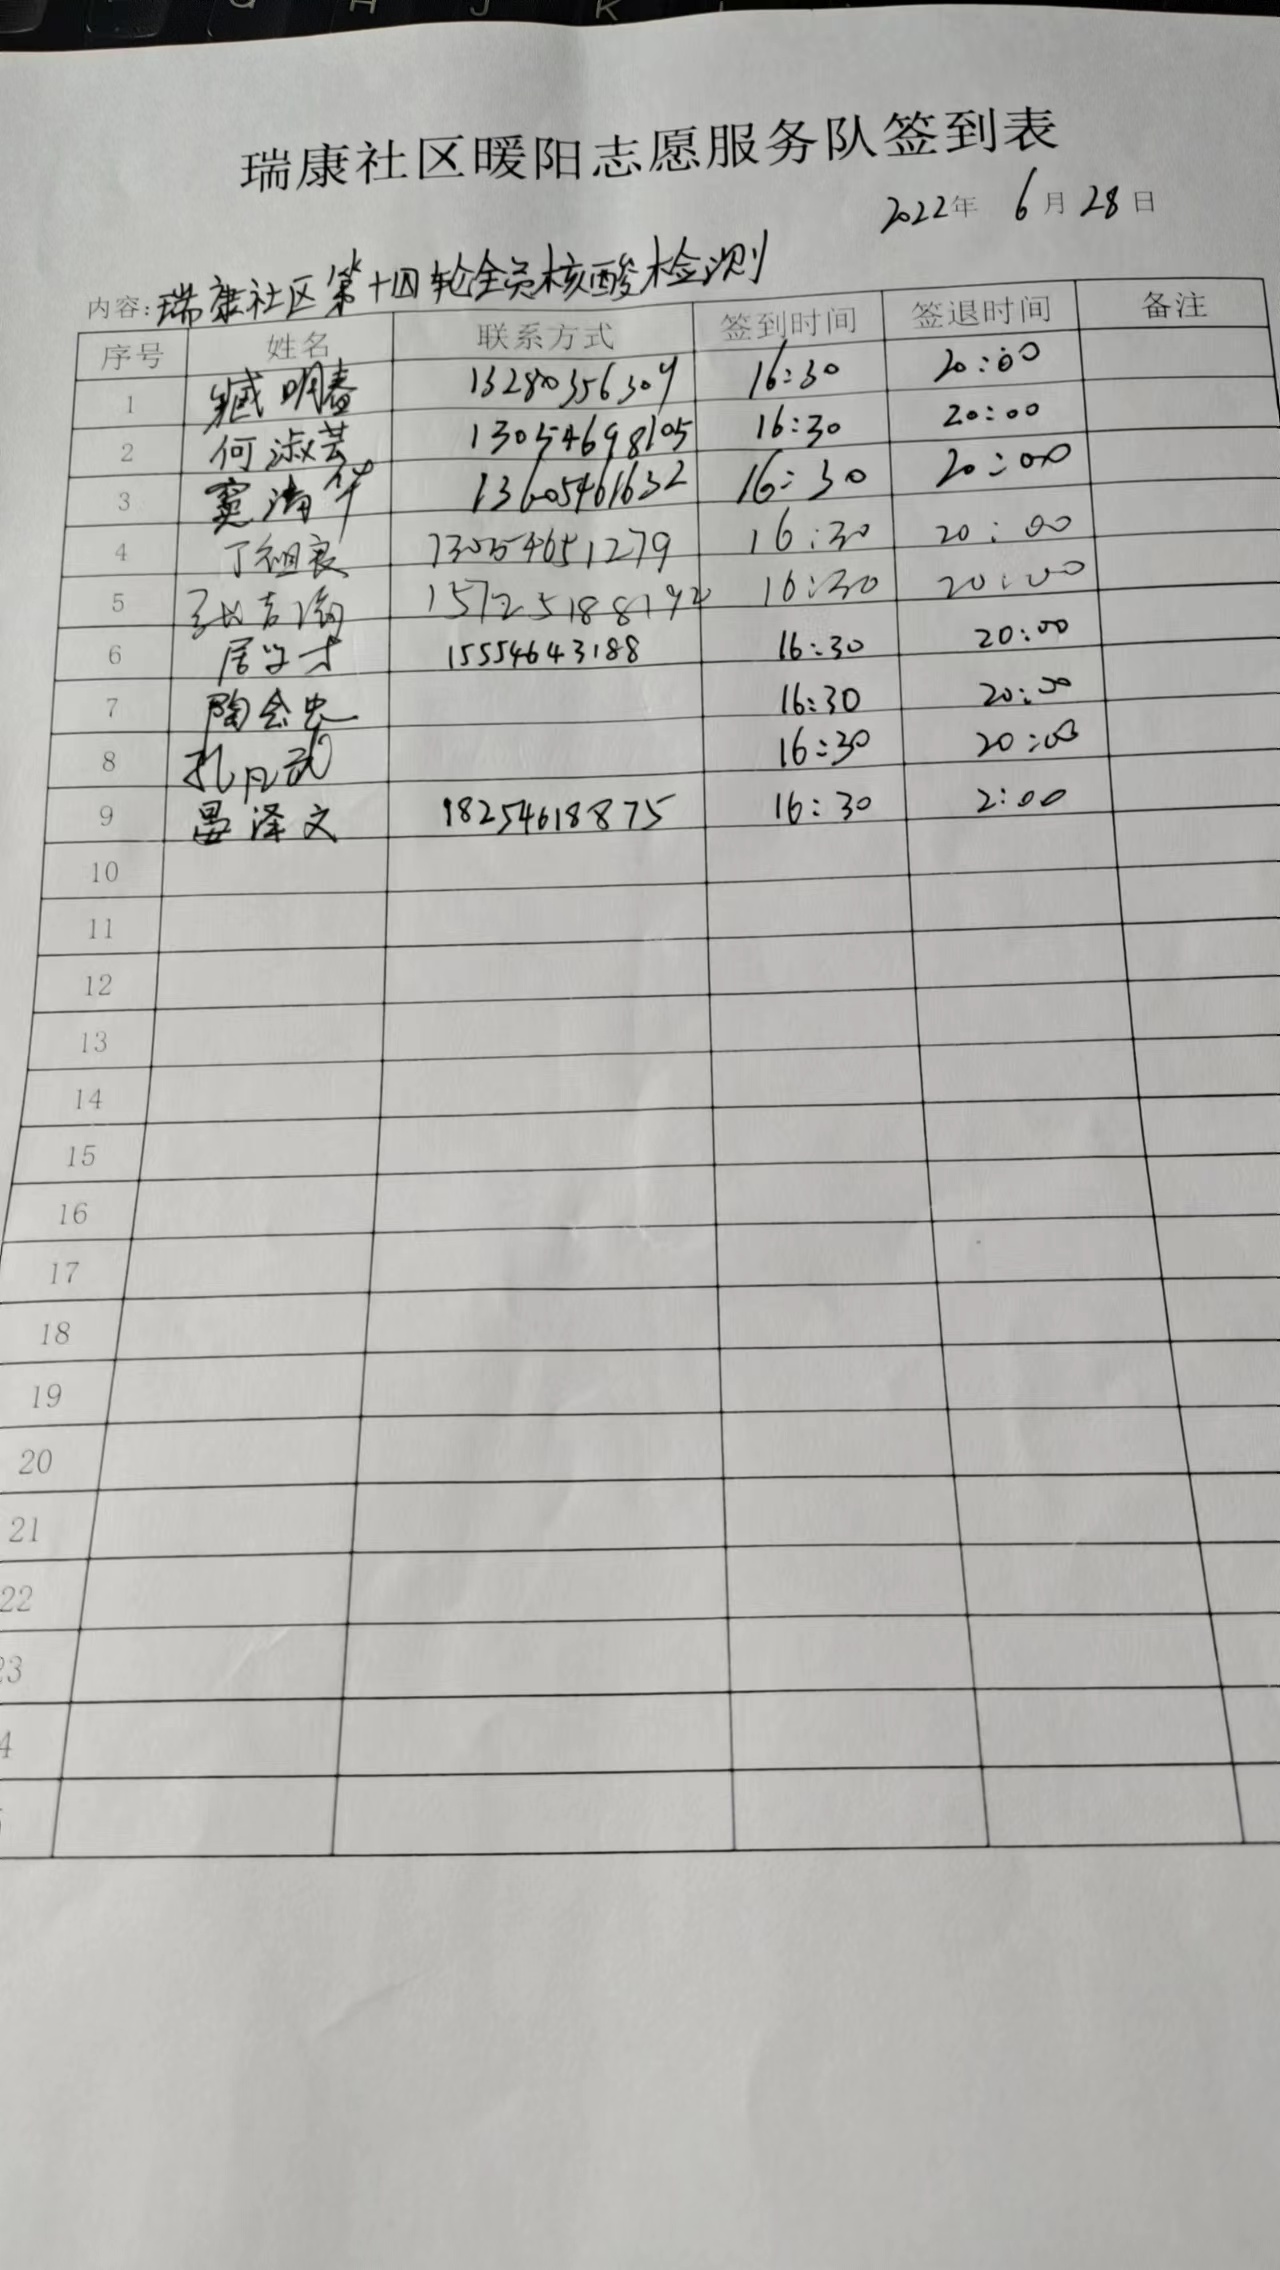 G H J K L
瑞康社区暖阳志愿服务队签到表
2022年 6月28日
内容:瑞康社区第十四轮全员核酸检测
序号 姓名 联系方式 签到时间 签退时间 备注
1 臧明春 13280356309 16:30 20:00
2 何淑芸 13054698105 16:30 20:00
3 窦清华 13605461632 16:30 20:00
4 丁祖良 13054651279 16:30 20:00
5 16:30 20:00
6 居学才 15554643188 16:30 20:00
7 陶会忠 16:30 20:00
8 孔凡武 16:30 20:00
9 晏泽文 18254618875 16:30 2:00
10
11
12
13
14
15
16
17
18
19
20
21
22
23
4